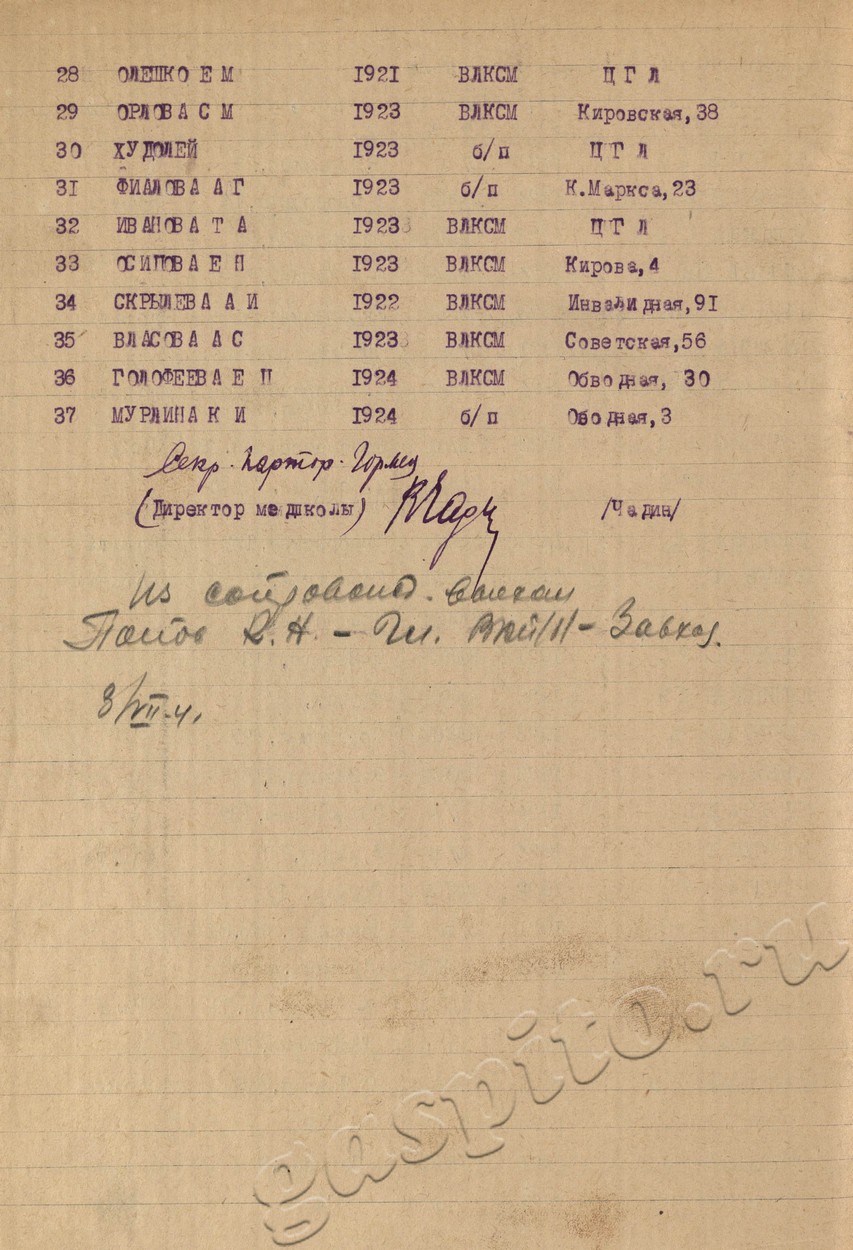 28 ОЛЕШКО Е М 1921 ВЛКСМ Ц Г Л
29 ОРЛОВА С М 1923 ВЛКСМ Кировская,38
30 ХУДОЛЕЙ 1923 б/п Ц Г Л
31 ФИАЛОВА А Г 1923 б/п К.Маркса,23
32 ИВАНОВА Т А 1923 ВЛКСМ Ц Г Л
33 ОСИПОВА Е Н 1923 ВЛКСМ Кирова,4
34 СКРЫЛЕВА А И 1922 ВЛКСМ Инвалидная,91
35 ВЛАСОВА А С 1923 ВЛКСМ Советская,56
36 ГОЛОФЕЕВА Е П 1924 ВЛКСМ Обводная, 30
37 МУРЛИНА К И 1924 б/п Ободная,3
Секр. партор. Гормед
(Директор медшколы) /Чадин/
Из
Р.Н. – Чл. ВКП/б/ – Завхоз.
gaspito.ru